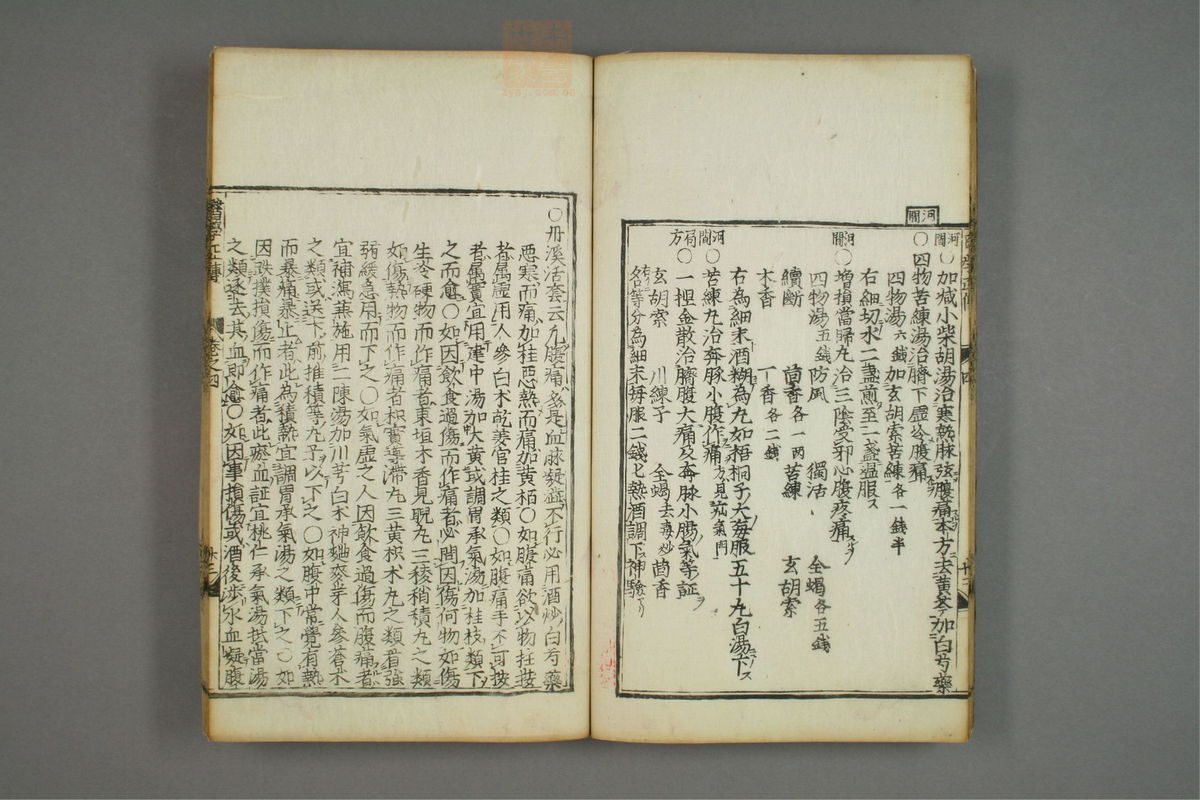 河間
河間
○加減小柴胡湯治寒熱脉弦腹痛本方去黄芩加白芍藥
○四物苦練湯治臍下虚冷腹痛
四物湯六錢加玄胡索苦練各一錢半
右細切水二盞煎至一盞温服ス
河間
○増損當歸丸治三陰受邪心腹疼痛
四物湯五錢 防風 獨活 全蝎各五錢
續斷 茴香各一兩 苦練 玄胡索
木香 丁香各二錢
右為細末酒糊為丸如梧桐子大毎服五十丸白湯下ス
河間
○苦練丸治奔豚小腹作痛方見疝氣門
局方
○一捏金散治臍腹大痛及奔豚小腸氣等証
玄胡索 川練子 全蝎去毒炒 茴香
右等分為細末毎服二錢匕熱酒調下神驗
○丹溪活套云凡腹痛多是血脉凝澁不行必用酒炒白芍藥
惡寒而痛加桂惡熱而痛加黄栢○如腹痛欲以物拄按
者屬虚用人參白朮乾姜官桂之類○如腹痛手不可按
者屬實宜用建中湯加大黄或調胃承氣湯加桂枝類下
之而愈○如因飲食過傷而作痛者必問因傷何物如傷
生冷硬物而作痛者東垣木香見睍丸三稜稍積丸之類
如傷熱物而作痛者枳實導滯丸三黄枳朮丸之類看強
弱緩急用而下之○如氣虚之人因飲食過傷而腹痛者
宜補瀉兼施用二陳湯加川芎白朮神麯麥芽人參蒼朮
之類或送下前推積等丸子以下之○如腹中常覺有熱
而暴痛暴止者此為積熱宜調胃承氣湯之類下之○如
因跌撲損傷而作痛者此瘀血証宜桃仁承氣湯抵當湯
之類逐去其血即愈○如因事損傷或酒後渉水血凝腹
醫學正傳 卷之四